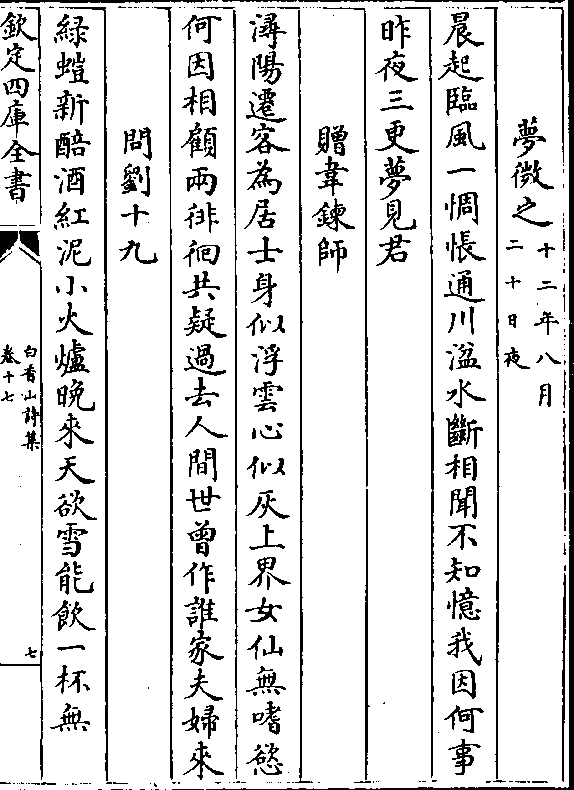 夢微之十二年八月二十日夜
晨起臨風一惆悵通川湓水斷相聞不知憶我因何事
昨夜三更夢見君
贈韋鍊師
潯陽遷客為居士身似浮雲心似灰上界女仙無嗜慾
何因相顧兩徘徊共疑過去人間世曾作誰家夫婦來
問劉十九
綠螘新醅酒紅泥小火爐晚來天欲雪能飲一杯無
欽定四庫全書
白香山詩集
卷十七
七